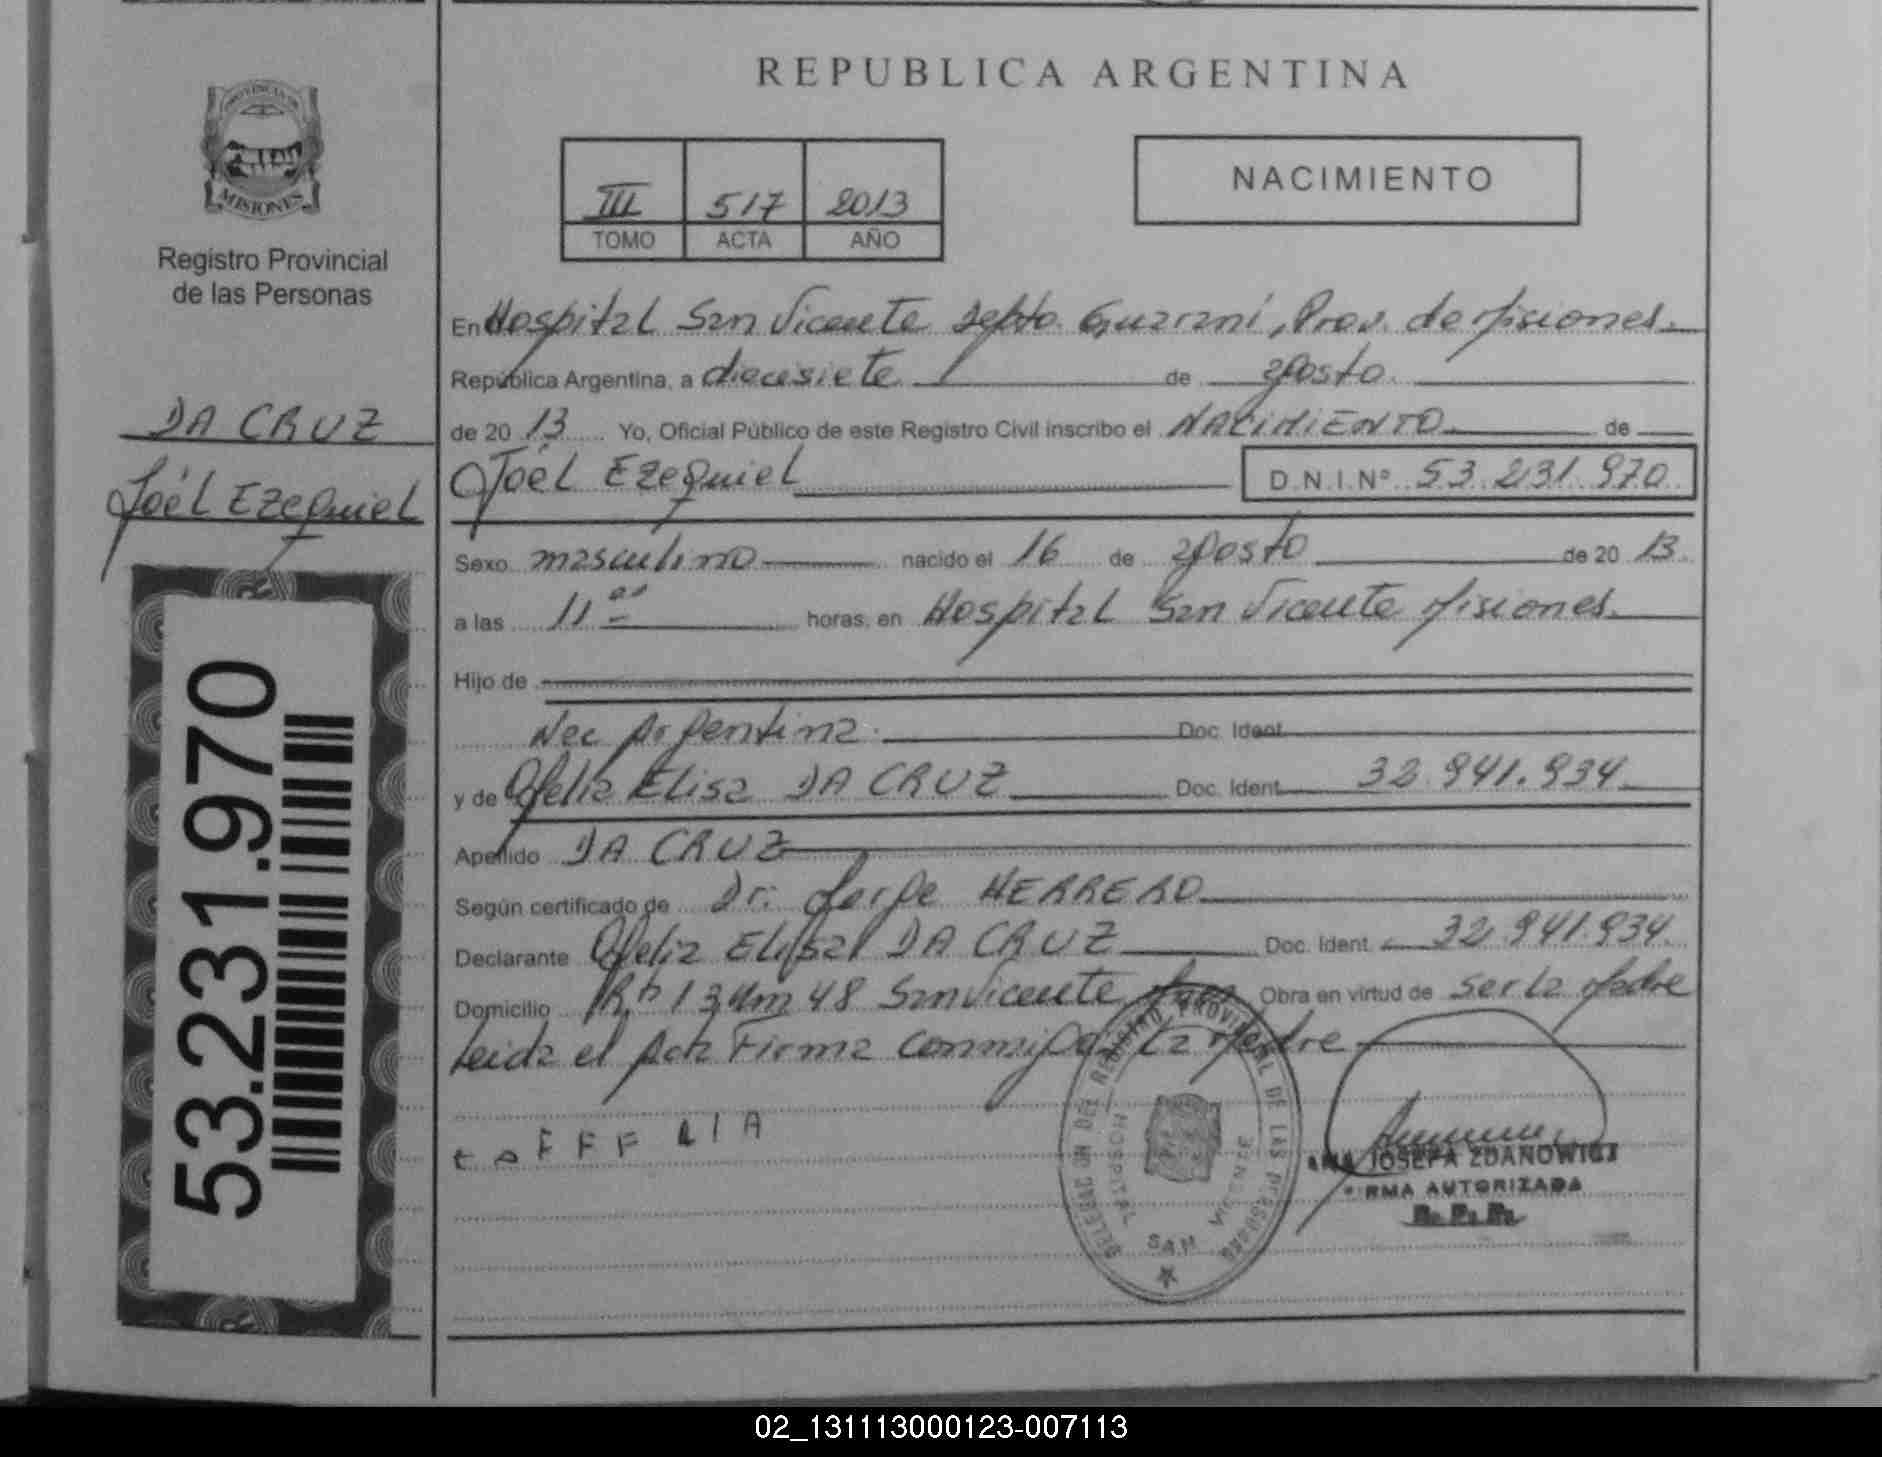 REPUBLICA ARGENTINA
PROVINCIA DE
MISIONES
Registro Provincial
de las Personas
III 517 2013
TOMO ACTA AÑO
NACIMIENTO
En Hospital San Vicente Depto. Guaraní, Prov. de Misiones.
República Argentina, a diecisiete de agosto
de 20 13 Yo, Oficial Público de este Registro Civil inscribo el NACIMIENTO de
Joél Ezequiel D.N.I.Nº 53.231.970
DA CRUZ
Joél Ezequiel
53.231.970
Sexo masculino nacido el 16 de agosto de 20 13
a las 11 horas, en Hospital San Vicente Misiones.
Hijo de
Nac Argentina. Doc. Ident.
y de Ofelia Elisa DA CRUZ Doc. Ident. 32.941.934
Apellido DA CRUZ
Según certificado de Dr. Jorge HERRERO
Declarante Ofelia Elisa DA CRUZ Doc. Ident. 32.941.934
Domicilio 13 Km 48 San Vicente Obra en virtud de ser la Madre
Leida el Acta Firma conmigo la Madre
DELEGACION DEL REGISTRO PROVINCIAL DE LAS PERSONAS
HOSPITAL SAN VICENTE
JOSEFA ZDANOWICZ
FIRMA AUTORIZADA
02_131113000123-007113